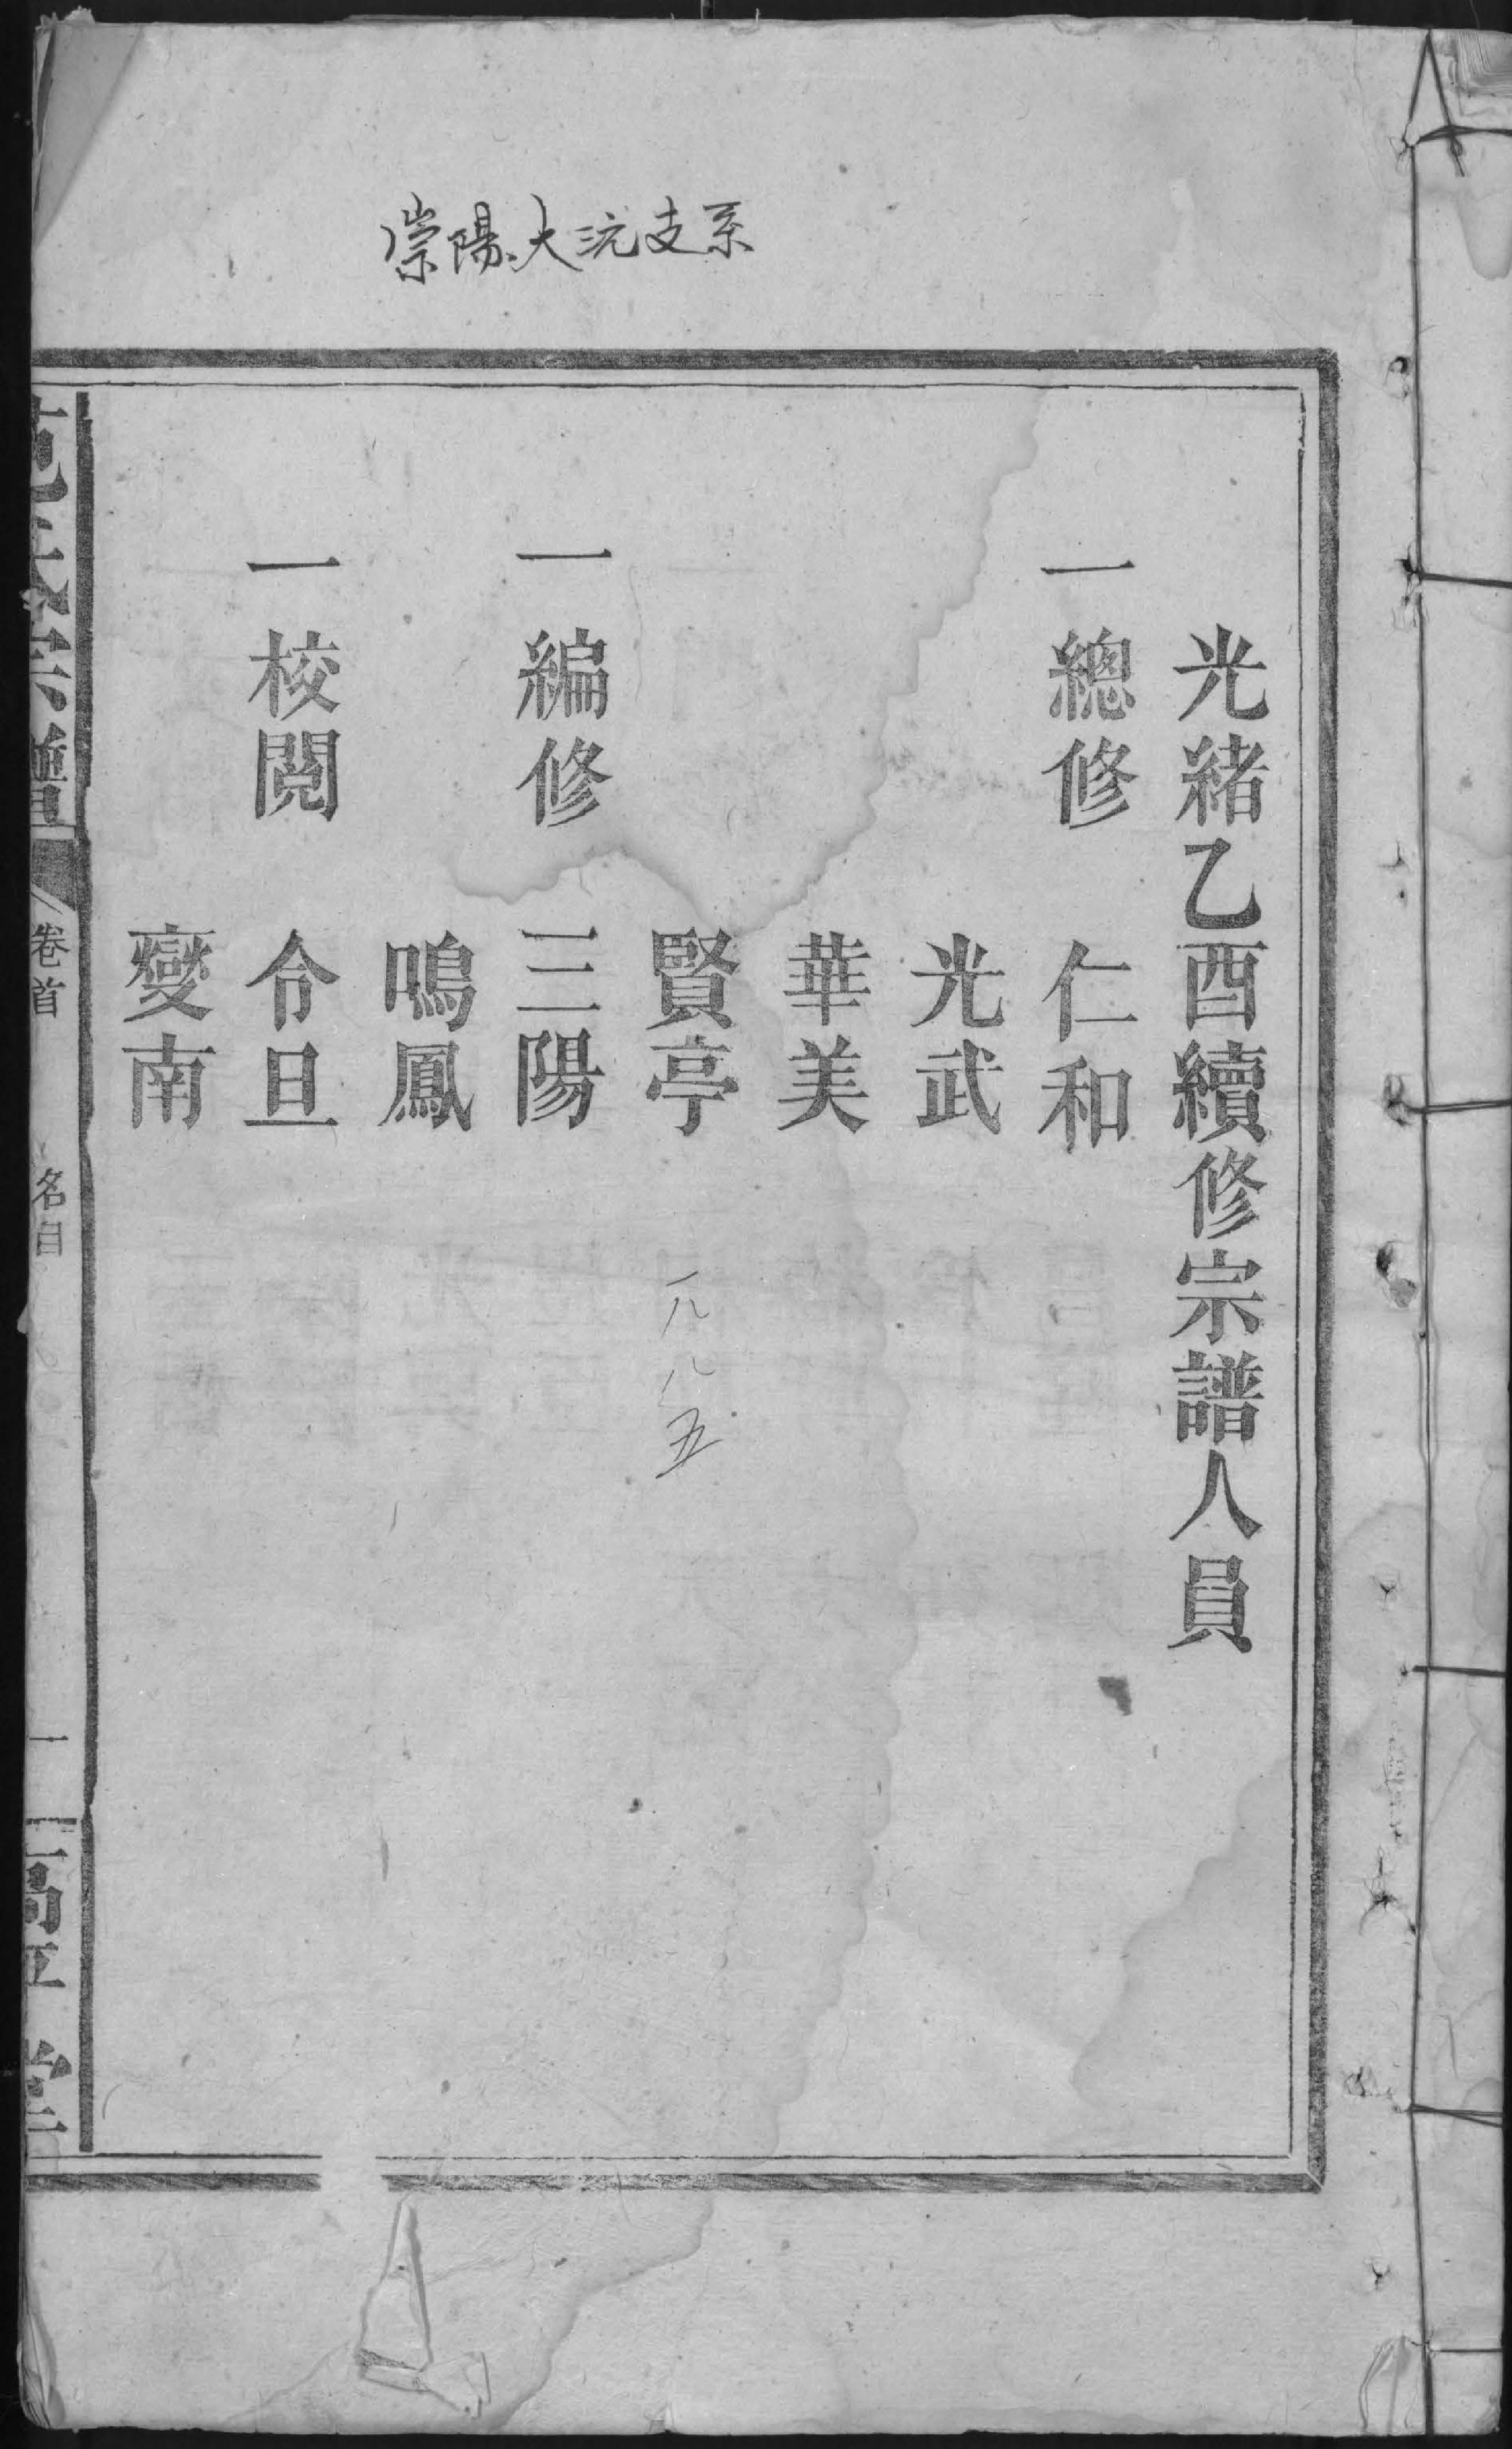 崇陽大沅支系
光緒乙酉續修宗譜人員
一總修 仁和
光武
華美
賢亭
一八八五
一編修 三陽
鳴鳳
一校閱 令旦
燮南
范氏宗譜
卷首 名目
一
高平堂